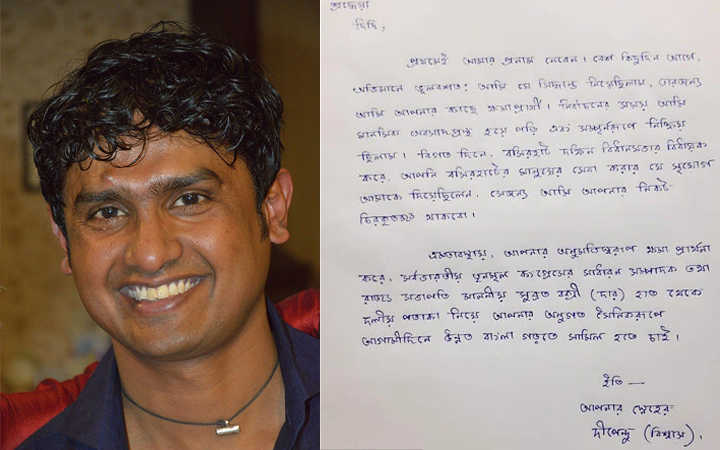 শ্রদ্ধেয়া
দিদি,
প্রথমেই আমার প্রনাম নেবেন। বেশ কিছুদিন আগে,
অভিমানে ভুলবশত: আমি যে সিদ্ধান্ত নিয়েছিলাম, সেজন্য
আমি আপনার কাছে ক্ষমাপ্রার্থী। নির্বাচনের সময় আমি
মানসিক অবসাদগ্রস্থ হয়ে পড়ি এবং সম্পূর্নরূপে নিষ্ক্রিয়
ছিলাম। বিগত দিনে, বসিরহাট দক্ষিন বিধানসভার বিধায়ক
করে, আপনি বসিরহাটের মানুষের সেবা করার যে সুযোগ
আমাকে দিয়েছিলেন, সেজন্য আমি আপনার নিকট
চিরকৃতজ্ঞ থাকবো।
এমতাবস্থায়, আপনার অনুমতিস্বরূপে ক্ষমা প্রার্থনা
করে, সর্বভারতীয় তৃনমূল কংগ্রেসের সাধারন সম্পাদক তথা
রাজ্য সভাপতি মাননীয় সুব্রত বক্সী (দার) হাত থেকে
দলীয় পতাকা নিয়ে আপনার অনুগত সৈনিকরূপে
আগামীদিনে উন্নত বাংলা গড়তে সামিল হতে চাই।
ইতি —
আপনার স্নেহের
দীপেন্দু (বিশ্বাস),